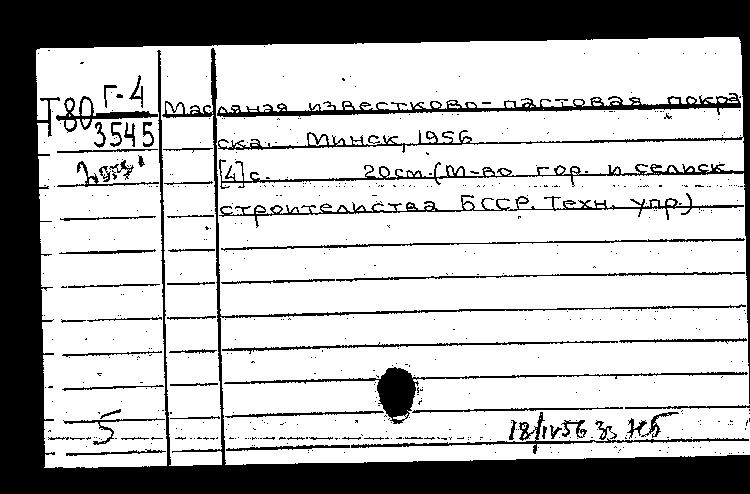 Г-4
Т80 Масляная известково-пастовая покра
3545
ска. Минск, 1956
[4]с. 20см.(М-во гор. и сельск
строительства БССР. Техн. упр.)
5
18/IV56